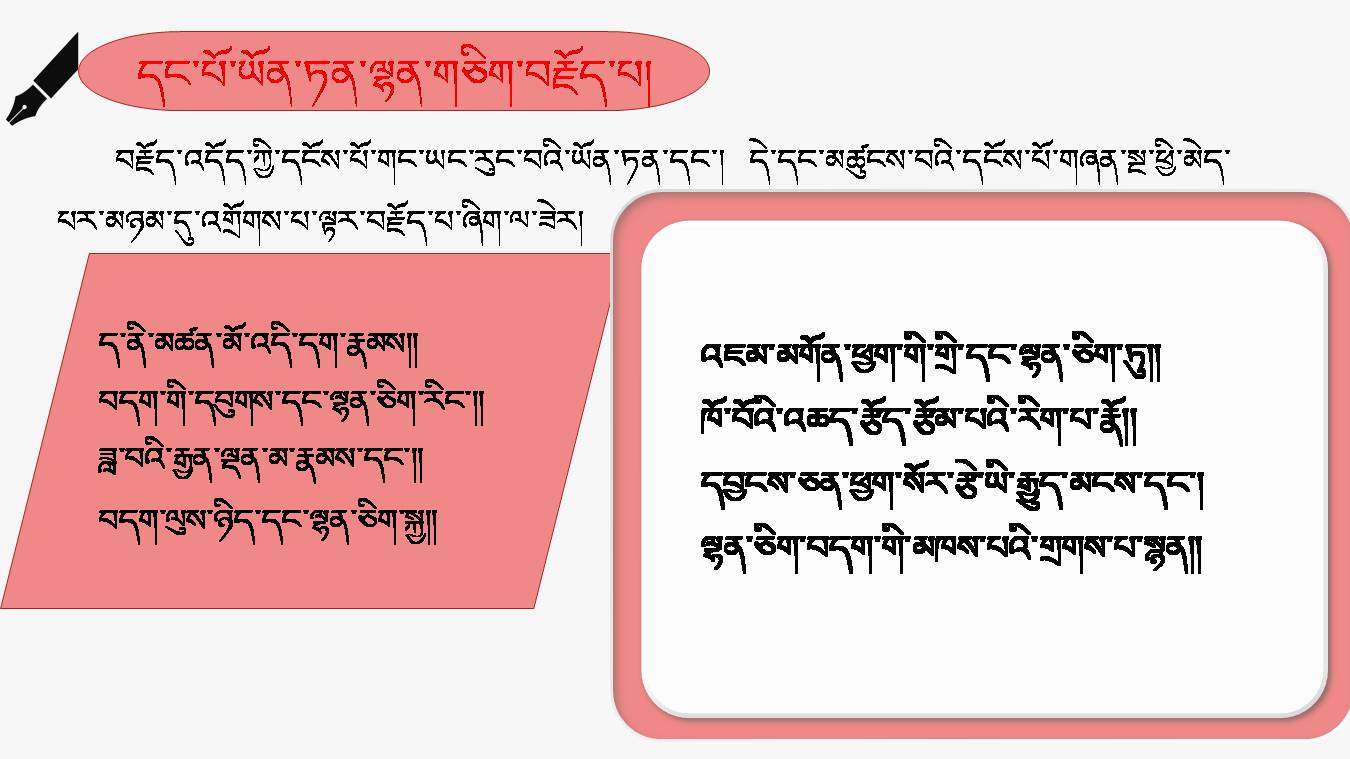 དང་པོ་ཡོན་ཏན་ལྷན་གཅིག་བརྗོད་པ།
བརྗོད་འདོད་ཀྱི་དངོས་པོ་གང་ཡང་རུང་བའི་ཡོན་ཏན་དང་། དེ་དང་མཚུངས་བའི་དངོས་པོ་གཞན་སྔ་ཕྱི་མེད་
པར་མཉམ་དུ་འགྲོགས་པ་ལྟར་བརྗོད་པ་ཞིག་ལ་ཟེར།
ད་ནི་མཚན་མོ་འདི་དག་རྣམས།།
བདག་གི་དབུགས་དང་ལྷན་ཅིག་རིང་།།
ཟླ་བའི་རྒྱན་ལྡན་མ་རྣམས་དང་།།
བདག་ལུས་ཉིད་དང་ལྷན་ཅིག་སྐྱ།།
འཇམ་མགོན་ཕྱག་གི་གྲི་དང་ལྷན་ཅིག་ཏུ།།
ཁོ་བོའི་འཆད་རྩོད་རྩོམ་པའི་རིག་པ་རྣོ།།
དབྱངས་ཅན་ཕྱག་སོར་རྩེ་ཡི་རྒྱུད་མངས་དང་།
ལྷན་ཅིག་བདག་གི་མཁས་པའི་གྲགས་པ་སྙན།།